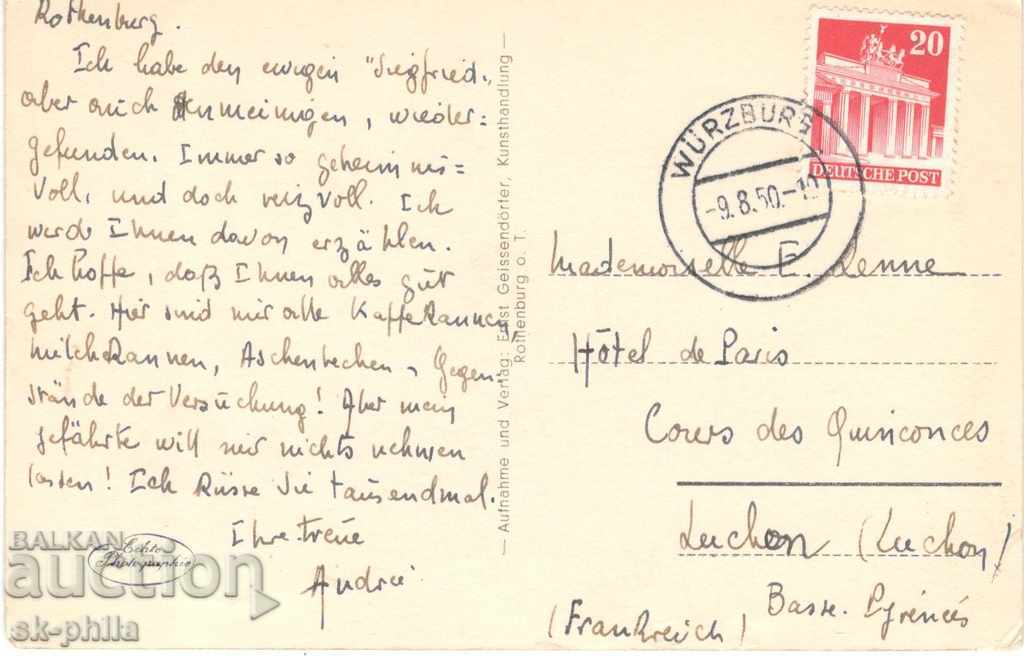 Rothenburg.
Ich habe den ewigen "Siegfried",
aber auch den meinigen, wieder=
gefunden. Immer so geheimnis=
voll, und doch reizvoll. Ich
werde Ihnen davon erzählen.
Ich hoffe, daß Ihnen alles gut
geht. Hier sind mir alle Kaffekannen,
Milchkannen, Aschenbechen, Gegen-
stände der Versuchung! Aber mein
gefährte will mir nichts nehmen
lassen! Ich Küsse Sie tausendmal.
Ihre treue
Andrée
Echte
Photographie
— Aufnahme und Verlag: Ernst Geissendörfer, Kunsthandlung —
Rothenburg o. T.
20
DEUTSCHE POST
WÜRZBURG
-9.8.50.-19
Mademoiselle E. Lenne
Hôtel de Paris
Cours des Quinconces
Luchon (Luchon)
Basse. Pyrénées
(Frankreich)
BALKAN
auction
sk-phila